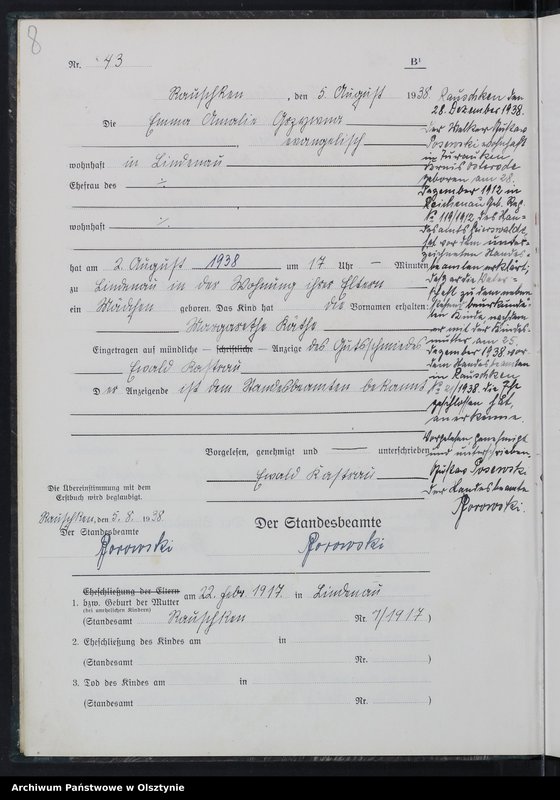 8
Nr. 43
B¹
Rauschken, den 5. August 1938.
Die Emma Amalie
evangelisch
wohnhaft in Lindenau
Ehefrau des ./.
wohnhaft ./.
hat am 2. August 1938 um 17 Uhr — Minuten
zu Lindenau in der Wohnung ihrer Eltern
ein Mädchen geboren. Das Kind hat die Vornamen erhalten:
Margarethe Käthe
Eingetragen auf mündliche — schriftliche — Anzeige des Gutsschmiedes
Ewald Kastrau
Der Anzeigende ist dem Standesbeamten bekannt
Vorgelesen, genehmigt und — unterschrieben
Ewald Kastrau
Die Übereinstimmung mit dem
Erstbuch wird beglaubigt.
Rauschken, den 5. 8. 1938.
Der Standesbeamte
Borowski
Der Standesbeamte
Borowski
Rauschken den
28. Dezember 1938.
Der Melker Gustav
Posewski wohnhaft
in
Kreis Osterode
geboren am 28.
Dezember 1912 in
Reichenau Geb. Reg.
Nr. 119/1912 des Stan-
desamts
hat vor dem unter-
zeichneten Standes-
beamten erklärt,
daß er die Vater-
schaft zu dem neben-
stehend beurkunde-
ten Kinde nachdem
er mit der Kindes-
mutter am 25.
Dezember 1938 vor
dem Standesbeamten
in Rauschken
Nr. /1938 die Ehe
geschlossen hat,
anerkenne.
Vorgelesen genehmigt
und unterschrieben
Gustav Posewski
Der Standesbeamte
Borowski.
Eheschließung der Eltern
1. bzw. Geburt der Mutter am 22. Febr. 1917. in Lindenau
(bei unehelichen Kindern)
(Standesamt Rauschken Nr. 7/1917)
2. Eheschließung des Kindes am in
(Standesamt Nr. )
3. Tod des Kindes am in
(Standesamt Nr. )
Archiwum Państwowe w Olsztynie